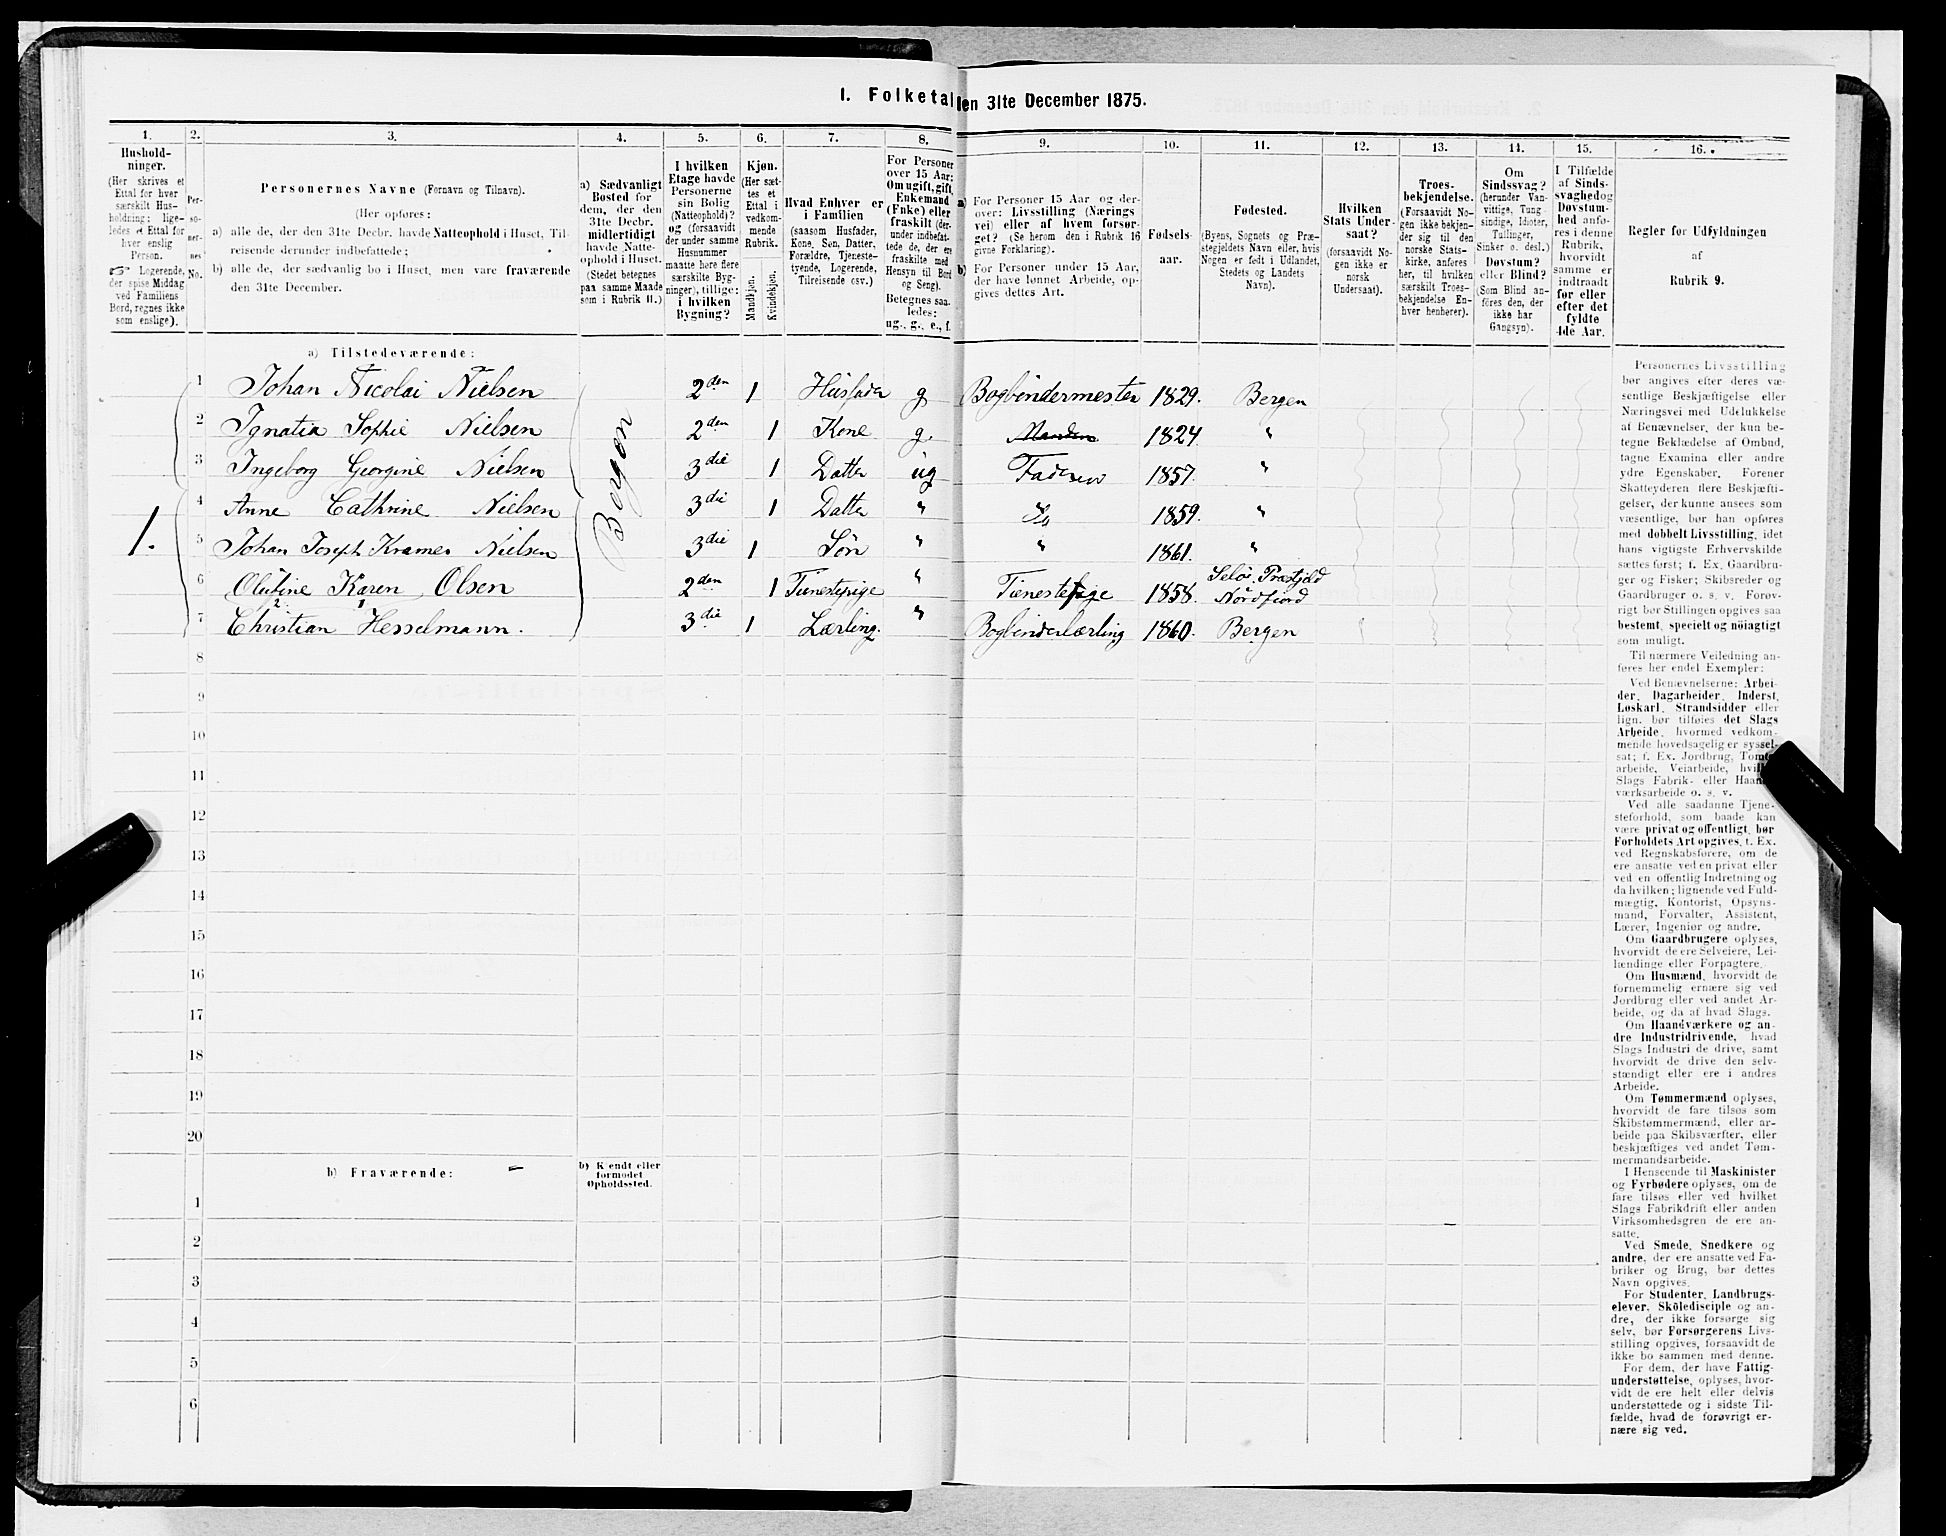 I. Folketal den 31te December 1875.
1.
Hushold-
ninger.
(Her skrives et
Ettal for hver
særskilt Hus-
holdning; lige-
ledes et Ettal for
hver enslig
Person.
☞ Logerende,
der spise Middag
ved Familiens
Bord, regnes ikke
som enslige).
2.
Per-
so-
ner-
nes
No.
3.
Personernes Navne (Fornavn og Tilnavn).
(Her opføres:
a) alle de, der den 31te Decbr. havde Natteophold i Huset, Til-
reisende derunder indbefattede;
b) alle de, der sædvanlig bo i Huset, men vare fraværende
den 31te December.
4.
a) Sædvanligt
Bosted for
dem, der den
31te Decbr.
midlertidigt
havde Natte-
ophold i Huset.
(Stedet betegnes
paa samme Maade
som i Rubrik 11.)
5.
I hvilken
Etage havde
Personerne
sin Bolig
(Natteophold)?
og (forsaavidt
der under samme
Husnummer
maatte høre flere
særskilte Byg-
ninger), tillige:
i hvilken
Bygning?
6.
Kjøn.
(Her sæt-
tes et
Ettal i
vedkom-
mende
Rubrik.
Mandkjøn.
Kvindekjøn.
7.
Hvad Enhver er
i Familien
(saasom Husfader,
Kone, Søn, Datter,
Forældre, Tjeneste-
tyende, Logerende,
Tilreisende csv.)
8.
For Personer
over 15 Aar:
Om ugift, gift,
Enkemand
(Enke) eller
fraskilt (der-
under indbefat-
tede de, der ere
fraskilte med
Hensyn til Bord
og Seng).
Betegnes saa-
ledes:
ug., g., e., f.
9.
a) For Personer 15 Aar og der-
over: Livsstilling (Nærings
vei) eller af hvem forsør-
get? (Se herom den i Rubrik 16
givne Forklaring).
b) For Personer under 15 Aar,
der have lønnet Arbeide, op-
gives dettes Art.
10.
Fødsels-
aar.
11.
Fødested.
(Byens, Sognets og Præ-
stegjeldets Navn eller, hvis
Nogen er født i Udlandet,
Stedets og Landets
Navn).
12.
Hvilken
Stats Under-
saat?
(forsaavidt No-
gen ikke er
norsk
Undersaat).
13.
Troes-
bekjendelse.
(Forsaavidt No-
gen ikke bekjen-
der sig til den
norske Stats-
kirke, anføres
her, til hvilken
særskilt Troes-
bekjendelse En-
hver henhører).
14.
Om
Sindssvag?
(herunder Van-
vittige, Tung-
sindige, Idioter,
Tullinger,
Sinker o. desl.)
Døvstum?
eller Blind?
(Som Blind an-
føres den, der
ikke har
Gangsyn).
15.
I Tilfælde
af Sinds-
svaghed og
Døvstum-
hed anfø-
res i denne
Rubrik,
hvorvidt
samme er
indtraadt
før eller
efter det
fyldte
4de Aar.
16.
Regler for Udfyldningen
af
Rubrik 9.
a) Tilstedeværende:
1 Johan Nicolai Nielsen 2den 1 Husfader g Bogbindermester 1829. Bergen
2 Ignatia Sophie Nielsen 2den 1 Kone g. Manden 1824 "
3 Ingeborg Georgine Nielsen 3die 1 Datter ug Faderen 1857. "
4 Anne Cathrine Nielsen 3die 1 Datter " Do 1859. "
5 Johan Joseph Kramer Nielsen 3die 1 Søn " " 1861. "
6 Olutine Karen Olsen 2den 1 Tienestepige " Tienestepige 1858. Selø. Præstjeld
Nordfiord
7 Christian Hesselmann. 3die 1 Lærling. " Bogbinderlærling 1860. Bergen
1.
Bergen
8
9
10
11
12
13
14
15
16
17
18
19
20
b) Fraværende: –
b) Kendt eller
formodet
Opholdssted.
1
2
3
4
5
6
Personernes Livsstilling
bør angives efter deres væ-
sentlige Beskjæftigelse eller
Næringsvei med Udelukkelse
af Benævnelser, der kun be-
tegne Beklædelse af Ombud,
tagne Examina eller andre
ydre Egenskaber. Forener
Skatteyderen flere Beskjæfti-
gelser, der kunne ansees som
væsentlige, bør han opføres
med dobbelt Livsstilling, idet
hans vigtigste Erhvervskilde
sættes først; f. Ex. Gaardbru-
ger og Fisker; Skibsreder og
Gaardbruger o. s. v. Forøv-
rigt bør Stillingen opgives saa
bestemt, specielt og nöiagtigt
som muligt.
Til nærmere Veiledning an-
føres her endel Exempler:
Ved Benævnelserne: Arbei-
der, Dagarbeider, Inderst,
Løskarl, Strandsidder eller
lign. bør tilføies det Slags
Arbeide, hvormed vedkom-
mende hovedsagelig er syssel-
sat; f. Ex. Jordbrug, Tomte-
arbeide, Veiarbeide, hvilket
Slags Fabrik- eller Haand-
værksarbeide o. s. v.
Ved alle saadanne Tjene-
steforhold, som baade kan
være privat og offentligt, bør
Forholdets Art opgives, f. Ex.
ved Regnskabsførere, om de
ere ansatte ved en privat eller
ved en offentlig Indretning og
da hvilken; lignende ved Fuld-
mægtig, Kontorist, Opsyns-
mand, Forvalter, Assistent,
Lærer, Ingeniør og andre.
Om Gaardbrugere oplyses,
hvorvidt de ere Selveiere, Lei-
lændinge eller Forpagtere.
Om Husmænd, hvorvidt de
fornemmelig ernære sig ved
Jordbrug eller ved andet Ar-
beide, og da af hvad Slags.
Om Haandværkere og an-
dre Industridrivende, hvad
Slags Industri de drive, samt
hvorvidt de drive den selv-
stændigt eller ere i andres
Arbeide.
Om Tømmermænd oplyses,
hvorvidt de fare tilsøs som
Skibstømmermænd, eller ar-
beide paa Skibsværfter, eller
beskjæftiges ved andet Tøm-
mermandsarbeide.
I Henseende til Maskinister
og Fyrbødere oplyses, om de
fare tilsøs eller ved hvilket
Slags Fabrikdrift eller anden
Virksomhedsgren de ere an-
satte.
Ved Smede, Snedkere og
andre, der ere ansatte ved Fa-
briker og Brug, bør dettes
Navn opgives.
For Studenter, Landbrugs-
elever, Skoledisciple og an-
dre, der ikke forsørge sig
selv, bør Forsørgerens Livs-
stilling opgives, forsaavidt de
ikke bo sammen med denne.
For dem, der have Fattig-
understøttelse, oplyses, hvor-
vidt de ere helt eller delvis
understøttede og i sidste Til-
fælde, hvad de forøvrigt er-
nære sig ved.